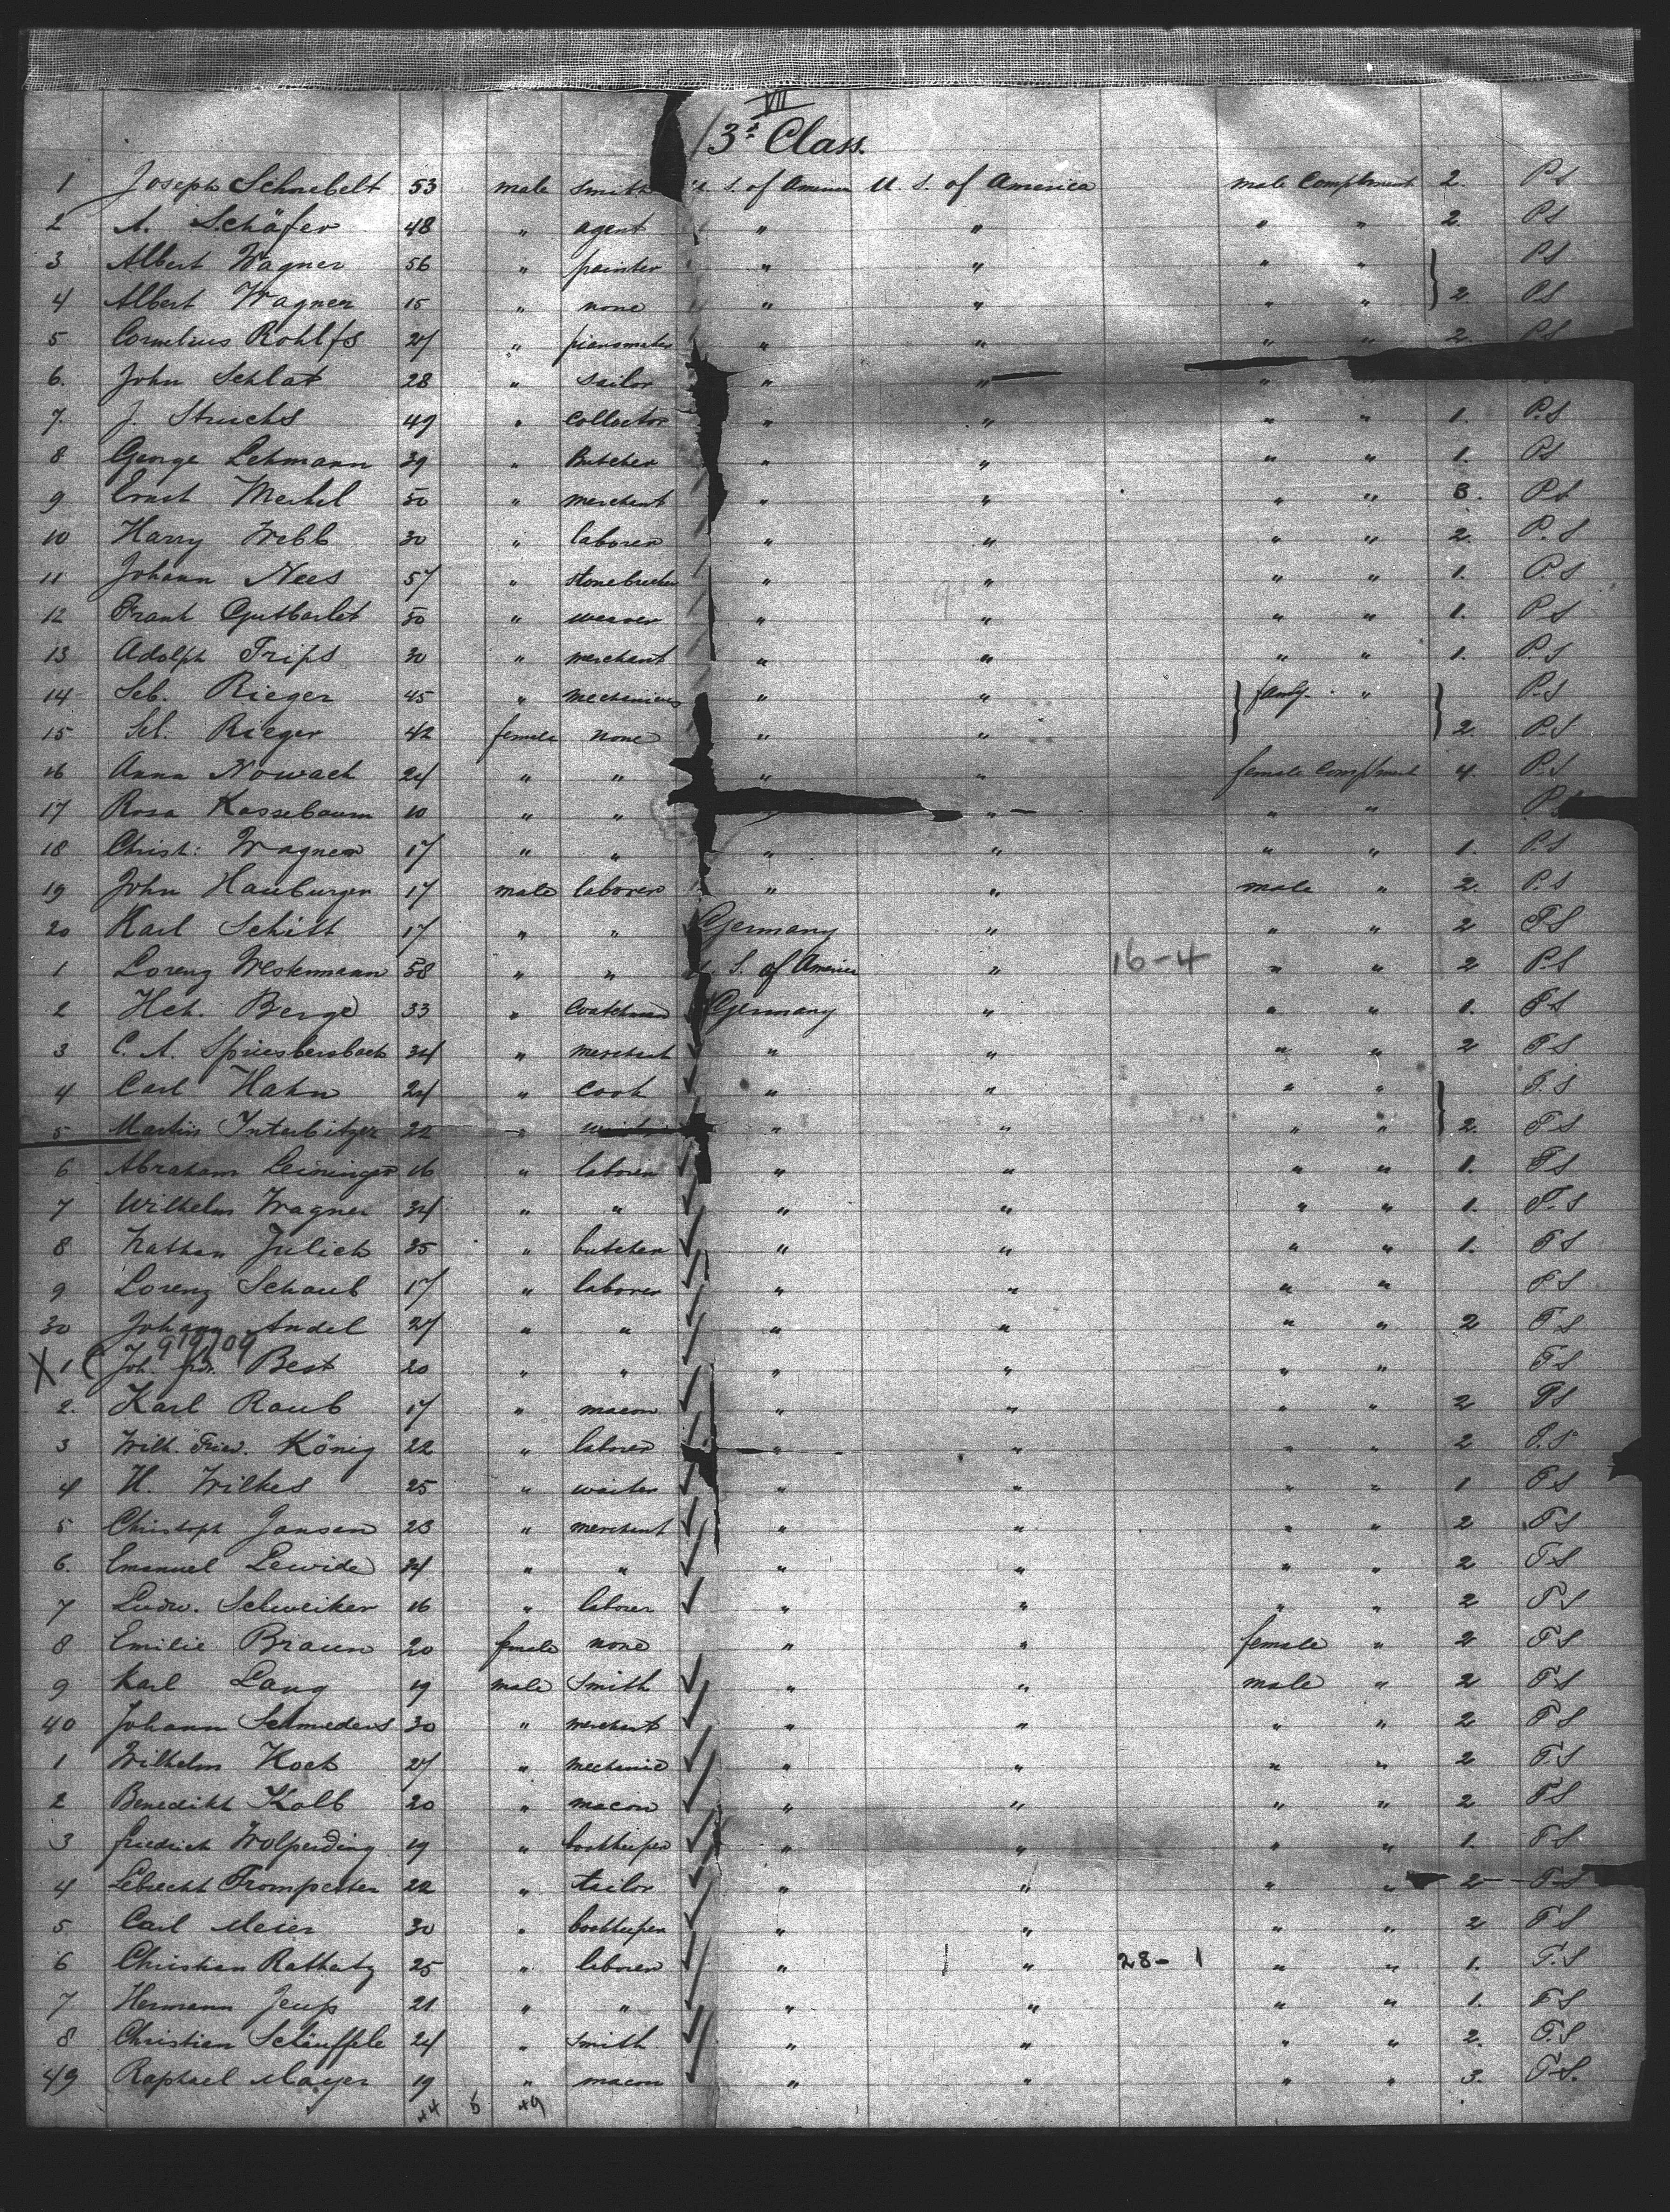 VII
3d Class.
1 Joseph Schnebelt 53 male Smith U. S. of America U. S. of America male Compliment 2. P.S
2 A. Schäfer 48 " agent " " " " 2. P.S
3 Albert Wagner 56 " painter " " " " P.S
4 Albert Wagner 15 " none " " " " 2 P.S
5 Cornelius Rohlfs 27 " pianomaker " " " " 2. P.S
6. John Schlat 28 " sailor " " "
7. J. Struchs 49 " Collector " " " " 1. P.S
8 George Lehmann 39 " Butcher " " " " 1. P.S
9 Ernst Merkel 50 " merchant " " " " 3. P.S
10 Harry Webb 30 " laborer " " " " 2. P.S
11 Johann Nees 57 " stonebrecher " " " " 1. P.S
12 Frank Gutbarlet 50 " weaver " " " " 1. P.S
13 Adolph Trips 30 " merchant " " " " 1. P.S
14 Seb. Rieger 45 " mechenicus " " famly " P.S
15 Sel. Rieger 42 female none " " 2. P.S
16 Anna Nowack 24 " " " " female Compliment 4. P.S
17 Rosa Kassebaum 10 " " " " " P.S
18 Christ: Wagner 17 " " " " " " 1. P.S
19 John Hauburger 17 male laborer " " male " 2. P.S
20 Karl Schitt 17 " " Germany " " " 2 T.S
1 Lorenz Westermann 58 " " U. S. of America " 16-4 " " 2 P.S
2 Hch. Berge 33 " Coatchman Germany " " " 1. T.S
3 C. A. Spriesbersbach 34 " merchant " " " " 2 T.S
4 Carl Hahn 24 " Cook " " " " T.S
5 Martin Interbitzer 22 " " " " " 2. T.S
6 Abraham Leininger 16 " laborer " " " " 1. T.S
7 Wilhelm Wagner 34 " " " " " " 1. T.S
8 Nathan Julich 35 " butcher " " " " 1. T.S
9 Lorenz Schaub 17 " laborer " " " " T.S
30 Johann Andel 27 " " " " " " 2 T.S
X 1 Joh. frdr. Best 20 " " " " " " T.S
2. Karl Raub 17 " macon " " " " 2 T.S
3 Wilh. Fried. König 22 " laborer " " " " 2 T.S
4 H. Wilkes 25 " waiter " " " " 1 T.S
5 Christoph Jansen 23 " merchant " " " " 2 T.S
6. Emanuel Lewide 34 " " " " " " 2 T.S
7 Ludw. Schweiker 16 " laborer " " " " 2 T.S
8 Emilie Braun 20 female none " " female " 2 T.S
9 Karl Lang 19 male Smith " " male " 2 T.S
40 Johann Schmieders 30 " merchant " " " " 2 T.S
1 Wilhelm Koch 27 " mechenic " " " " 2 T.S
2 Benedikt Kolb 20 " macon " " " " 2 T.S
3 friedrich Wolperding 19 " bookkeeper " " " " 1. T.S
4 Lebrecht Trompeter 22 " tailor " " " " 2 T.S
5 Carl Meier 30 " bookkeeper " " " " 2 T.S
6 Christian Rathatz 25 " laborer " " 28-1 " " 1. T.S
7 Hermann Jeup 21 " " " " " " 1. T.S
8 Christian Schäuffele 24 " smith " " " " 2. T.S
49 Raphael Mayer 19 " macon " " " " 3. T.S.
44 5 49